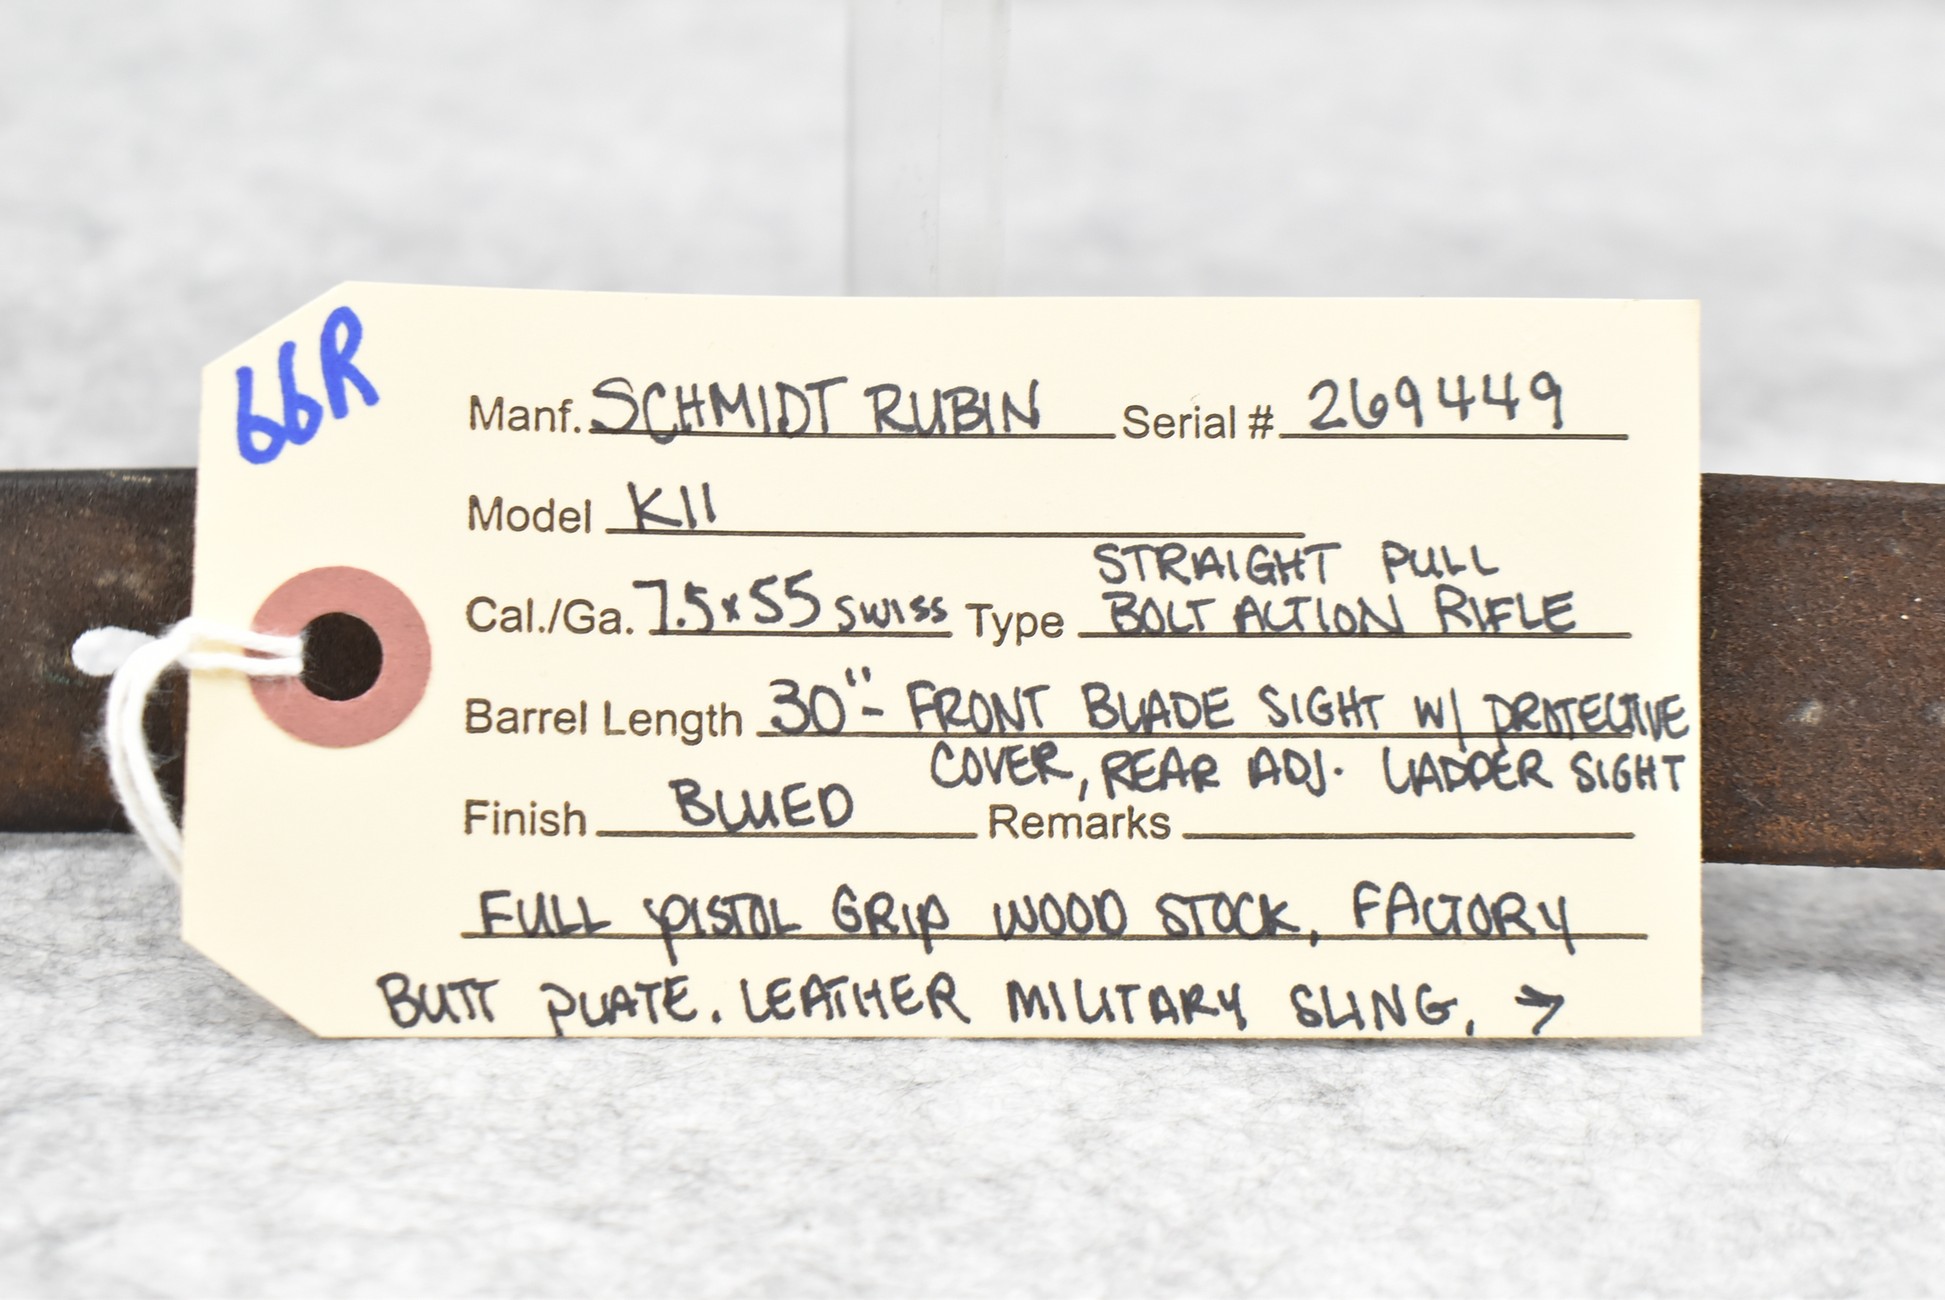 66R
Manf. SCHMIDT RUBIN Serial # 269449
Model K11
Cal./Ga. 7.5x55 SWISS Type STRAIGHT PULL
BOLT ACTION RIFLE
Barrel Length 30"- FRONT BLADE SIGHT W/ PROTECTIVE
COVER, REAR ADJ. LADDER SIGHT
Finish BLUED Remarks
FULL PISTOL GRIP WOOD STOCK, FACTORY
BUTT PLATE. LEATHER MILITARY SLING, →